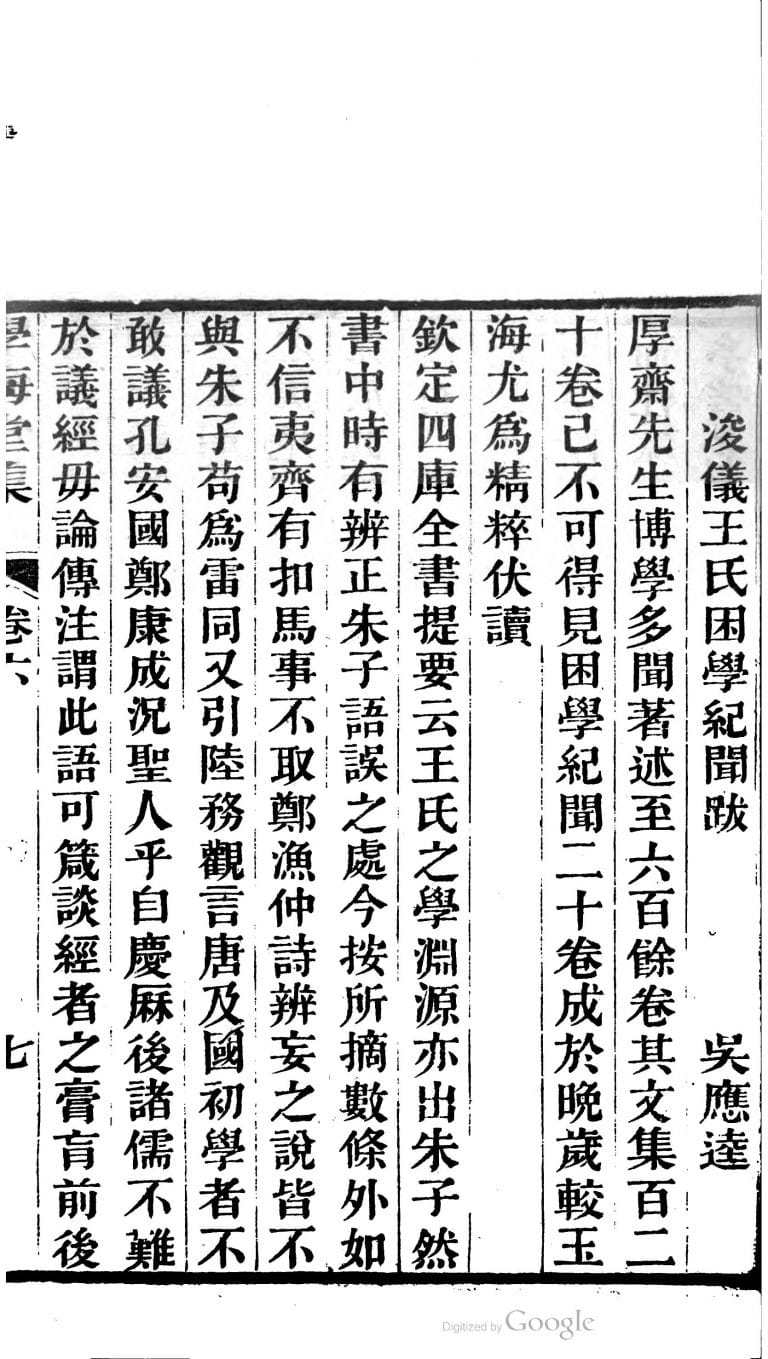 浚儀王氏困學紀聞跋 吳應逵
厚齋先生博學多聞著述至六百餘卷其文集百二
十卷己不可得見困學紀聞二十卷成於晚歲較玉
海尤爲精粹伏讀
欽定四庫全書提要云王氏之學淵源亦出朱子然
書中時有辨正朱子語誤之處今按所摘數條外如
不信夷齊有扣馬事不取鄭漁仲詩辨妄之說皆不
與朱子苟爲雷同又引陸務觀言唐及國初學者不
敢議孔安國鄭康成況聖人乎自慶厤後諸儒不難
於議經毋論傳注謂此語可箴談經者之膏肓前後
學海堂集 卷六 七
Digitized by Google